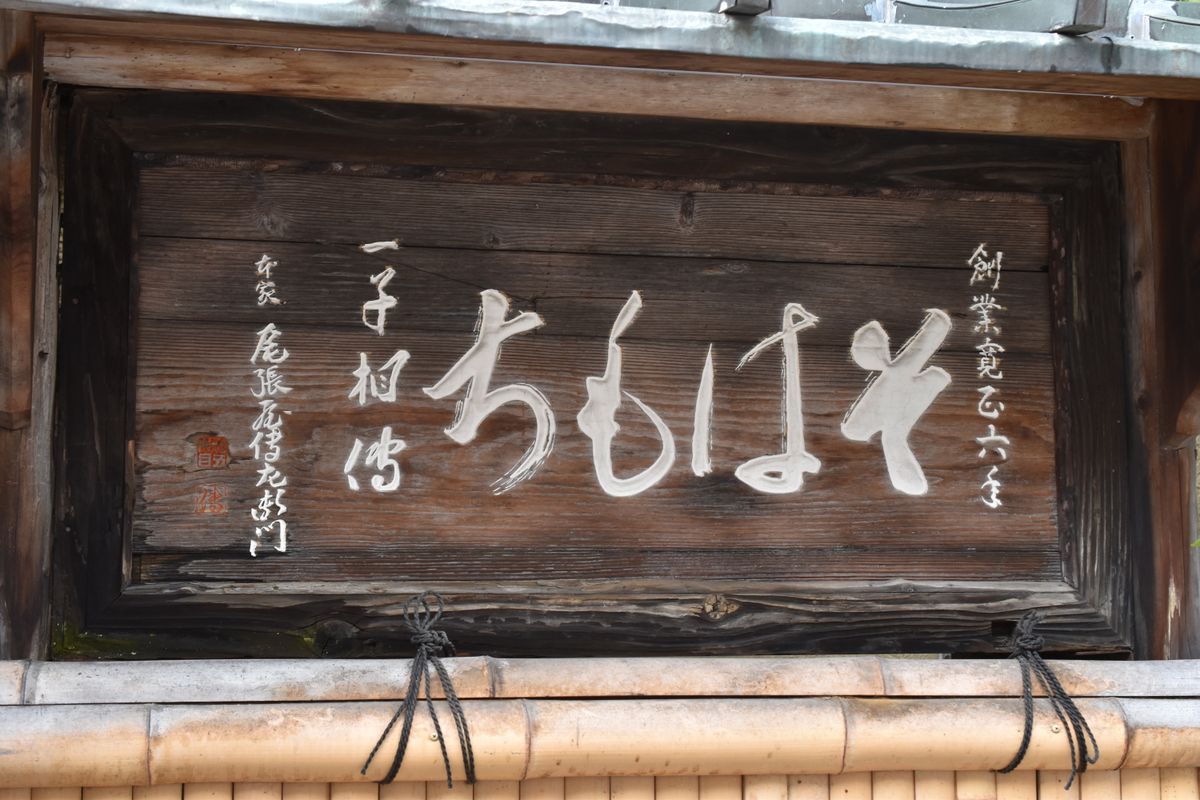 創業寛正六年
そばもち
一子相傳
本家 尾張屋傳左衛門